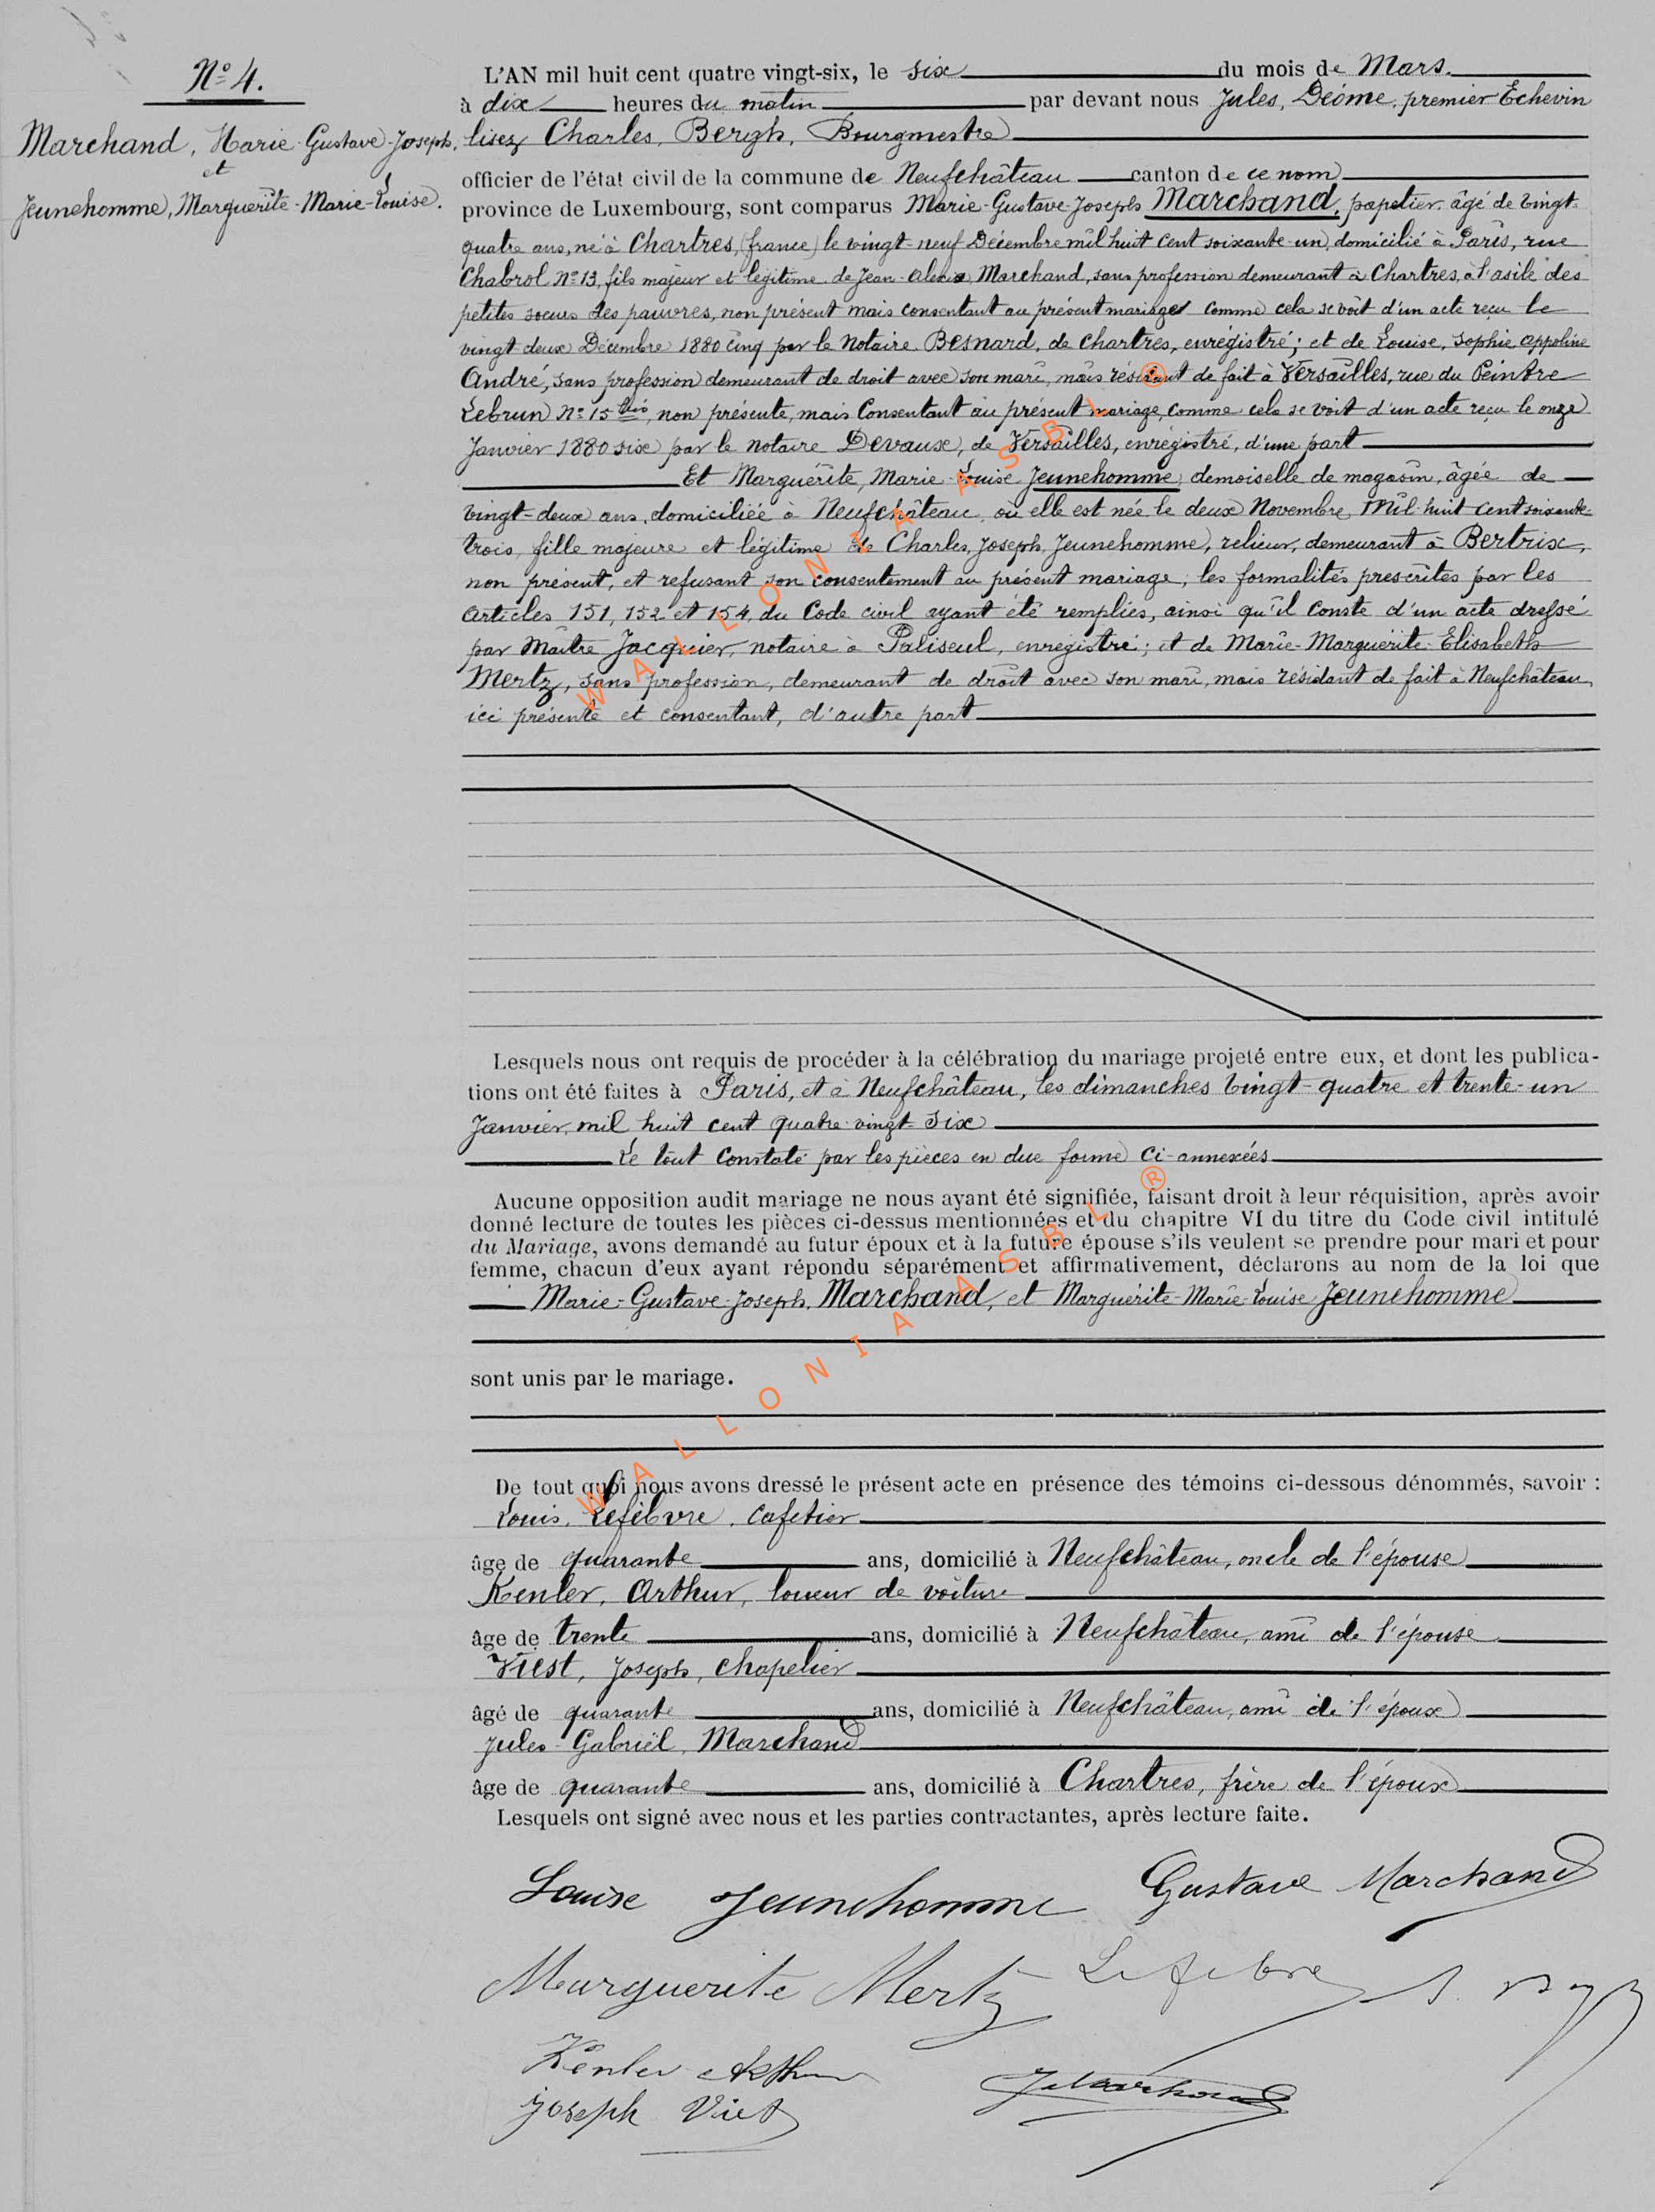 N° 4.
Marchand, Marie-Gustave-Joseph,
et
Jeunehomme, Marguerite-Marie-Louise.
L'AN mil huit cent quatre vingt-six, le six du mois de Mars.
à dix heures du matin par devant nous Jules, Déome, premier Échevin
lisez Charles, Bergh, Bourgmestre
officier de l'état civil de la commune de Neufchâteau canton de ce nom
province de Luxembourg, sont comparus Marie-Gustave-Joseph Marchand, papetier, âgé de vingt-
quatre ans, né à Chartres, (france) le vingt-neuf Décembre mil huit cent soixante-un, domicilié à Paris, rue
Chabrol N° 13, fils majeur et légitime de Jean-Alexis Marchand, sans profession demeurant à Chartres, à l'asile des
petites soeurs des pauvres, non présent mais consentant au présent mariage comme cela se voit d'un acte reçu le
vingt deux Décembre 1880 cinq par le Notaire Besnard, de Chartres, enrégistré; et de Louise, Sophie appoline
André, sans profession demeurant de droit avec son mari, mais résidant de fait à Versailles, rue du Peintre
Lebrun N° 15 bis, non présente, mais Consentant au présent mariage, comme cela se voit d'un acte reçu le onze
Janvier 1880 six par le notaire Devaux, de Versailles, enrégistré, d'une part
Et Marguérite, Marie-Louise Jeunehomme, demoiselle de magasin, âgée de
vingt-deux ans, domiciliée à Neufchâteau, où elle est née le deux Novembre Mil huit cent soixante-
trois, fille majeure et légitime de Charles, Joseph, Jeunehomme, relieur, demeurant à Bertrix,
non présent, et refusant son consentement au présent mariage; les formalités prescrites par les
articles 151, 152 et 154 du Code civil ayant été remplies, ainsi qu'il Conste d'un acte dressé
par Maître Jacquier, notaire à Paliseul, enregistré; et de Marie-Marguerite-Elisabeth
Mertz, sans profession, demeurant de droit avec son mari, mais résidant de fait à Neufchâteau,
ici présente et consentant, d'autre part
Lesquels nous ont requis de procéder à la célébration du mariage projeté entre eux, et dont les publica-
tions ont été faites à Paris, et à Neufchâteau, les dimanches vingt-quatre et trente-un
Janvier mil huit cent quatre-vingt-six
Le tout Constaté par les pièces en due forme ci-annexées
Aucune opposition audit mariage ne nous ayant été signifiée, faisant droit à leur réquisition, après avoir
donné lecture de toutes les pièces ci-dessus mentionnées et du chapitre VI du titre du Code civil intitulé
du Mariage, avons demandé au futur époux et à la future épouse s'ils veulent se prendre pour mari et pour
femme, chacun d'eux ayant répondu séparément et affirmativement, déclarons au nom de la loi que
Marie-Gustave-Joseph, Marchand, et Marguérite-Marie-Louise Jeunehomme
sont unis par le mariage.
De tout quoi nous avons dressé le présent acte en présence des témoins ci-dessous dénommés, savoir :
Louis, Lefèbvre, Cafetier
âge de quarante ans, domicilié à Neufchâteau, oncle de l'épouse
Kenler, Arthur, loueur de voiture
âge de trente ans, domicilié à Neufchâteau, ami de l'épouse
Viest, Joseph, Chapelier
âgé de quarante ans, domicilié à Neufchâteau, ami de l'époux
Jules-Gabriël, Marchand
âge de quarante ans, domicilié à Chartres, frère de l'époux
Lesquels ont signé avec nous et les parties contractantes, après lecture faite.
Louise Jeunehomme Gustave Marchand
Marguerite Mertz Lefebvre
Kenler Arthur
J Marchand
Joseph Viest
WALLONIA ASBL ®
WALLONIA ASBL ®